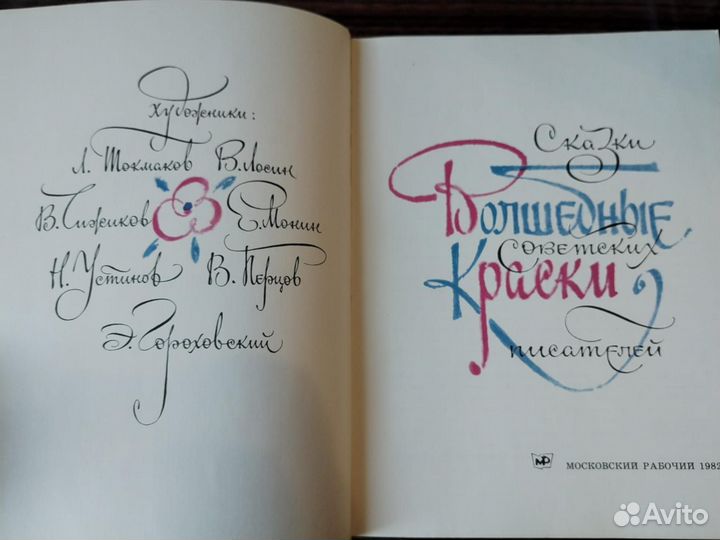 Художники:
Л. Токмаков В. Лосин
В. Чижиков Е. Монин
Н. Устинов В. Перцов
Э. Гороховский
Сказки
Волшебные
советских
Краски
писателей
МР МОСКОВСКИЙ РАБОЧИЙ 1982
Avito